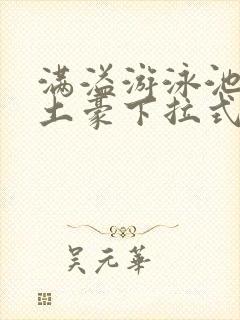 满溢游泳池
土豪下拉式
吴元华